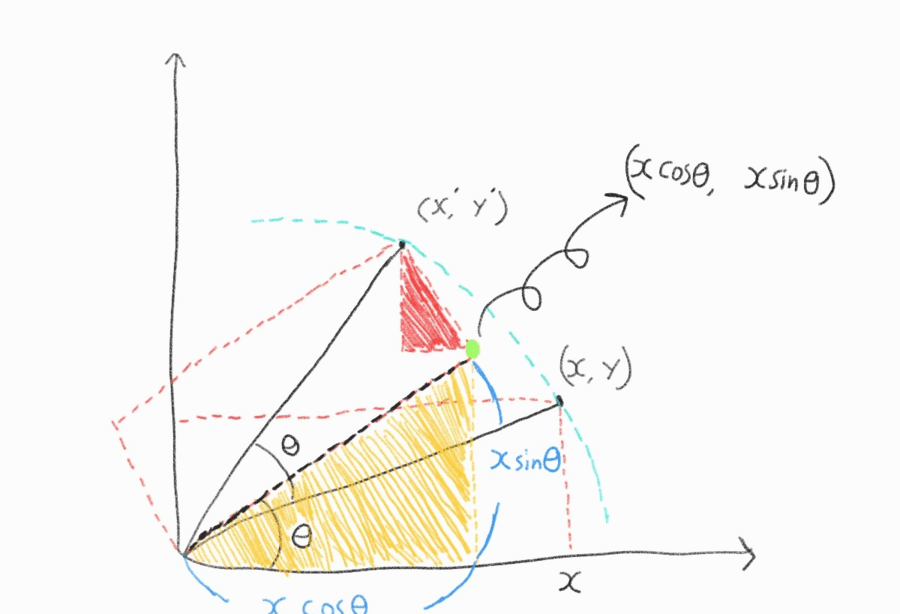 (x cosθ, x sinθ)
(x′, y′)
(x, y)
θ
x sinθ
θ
x
x cosθ